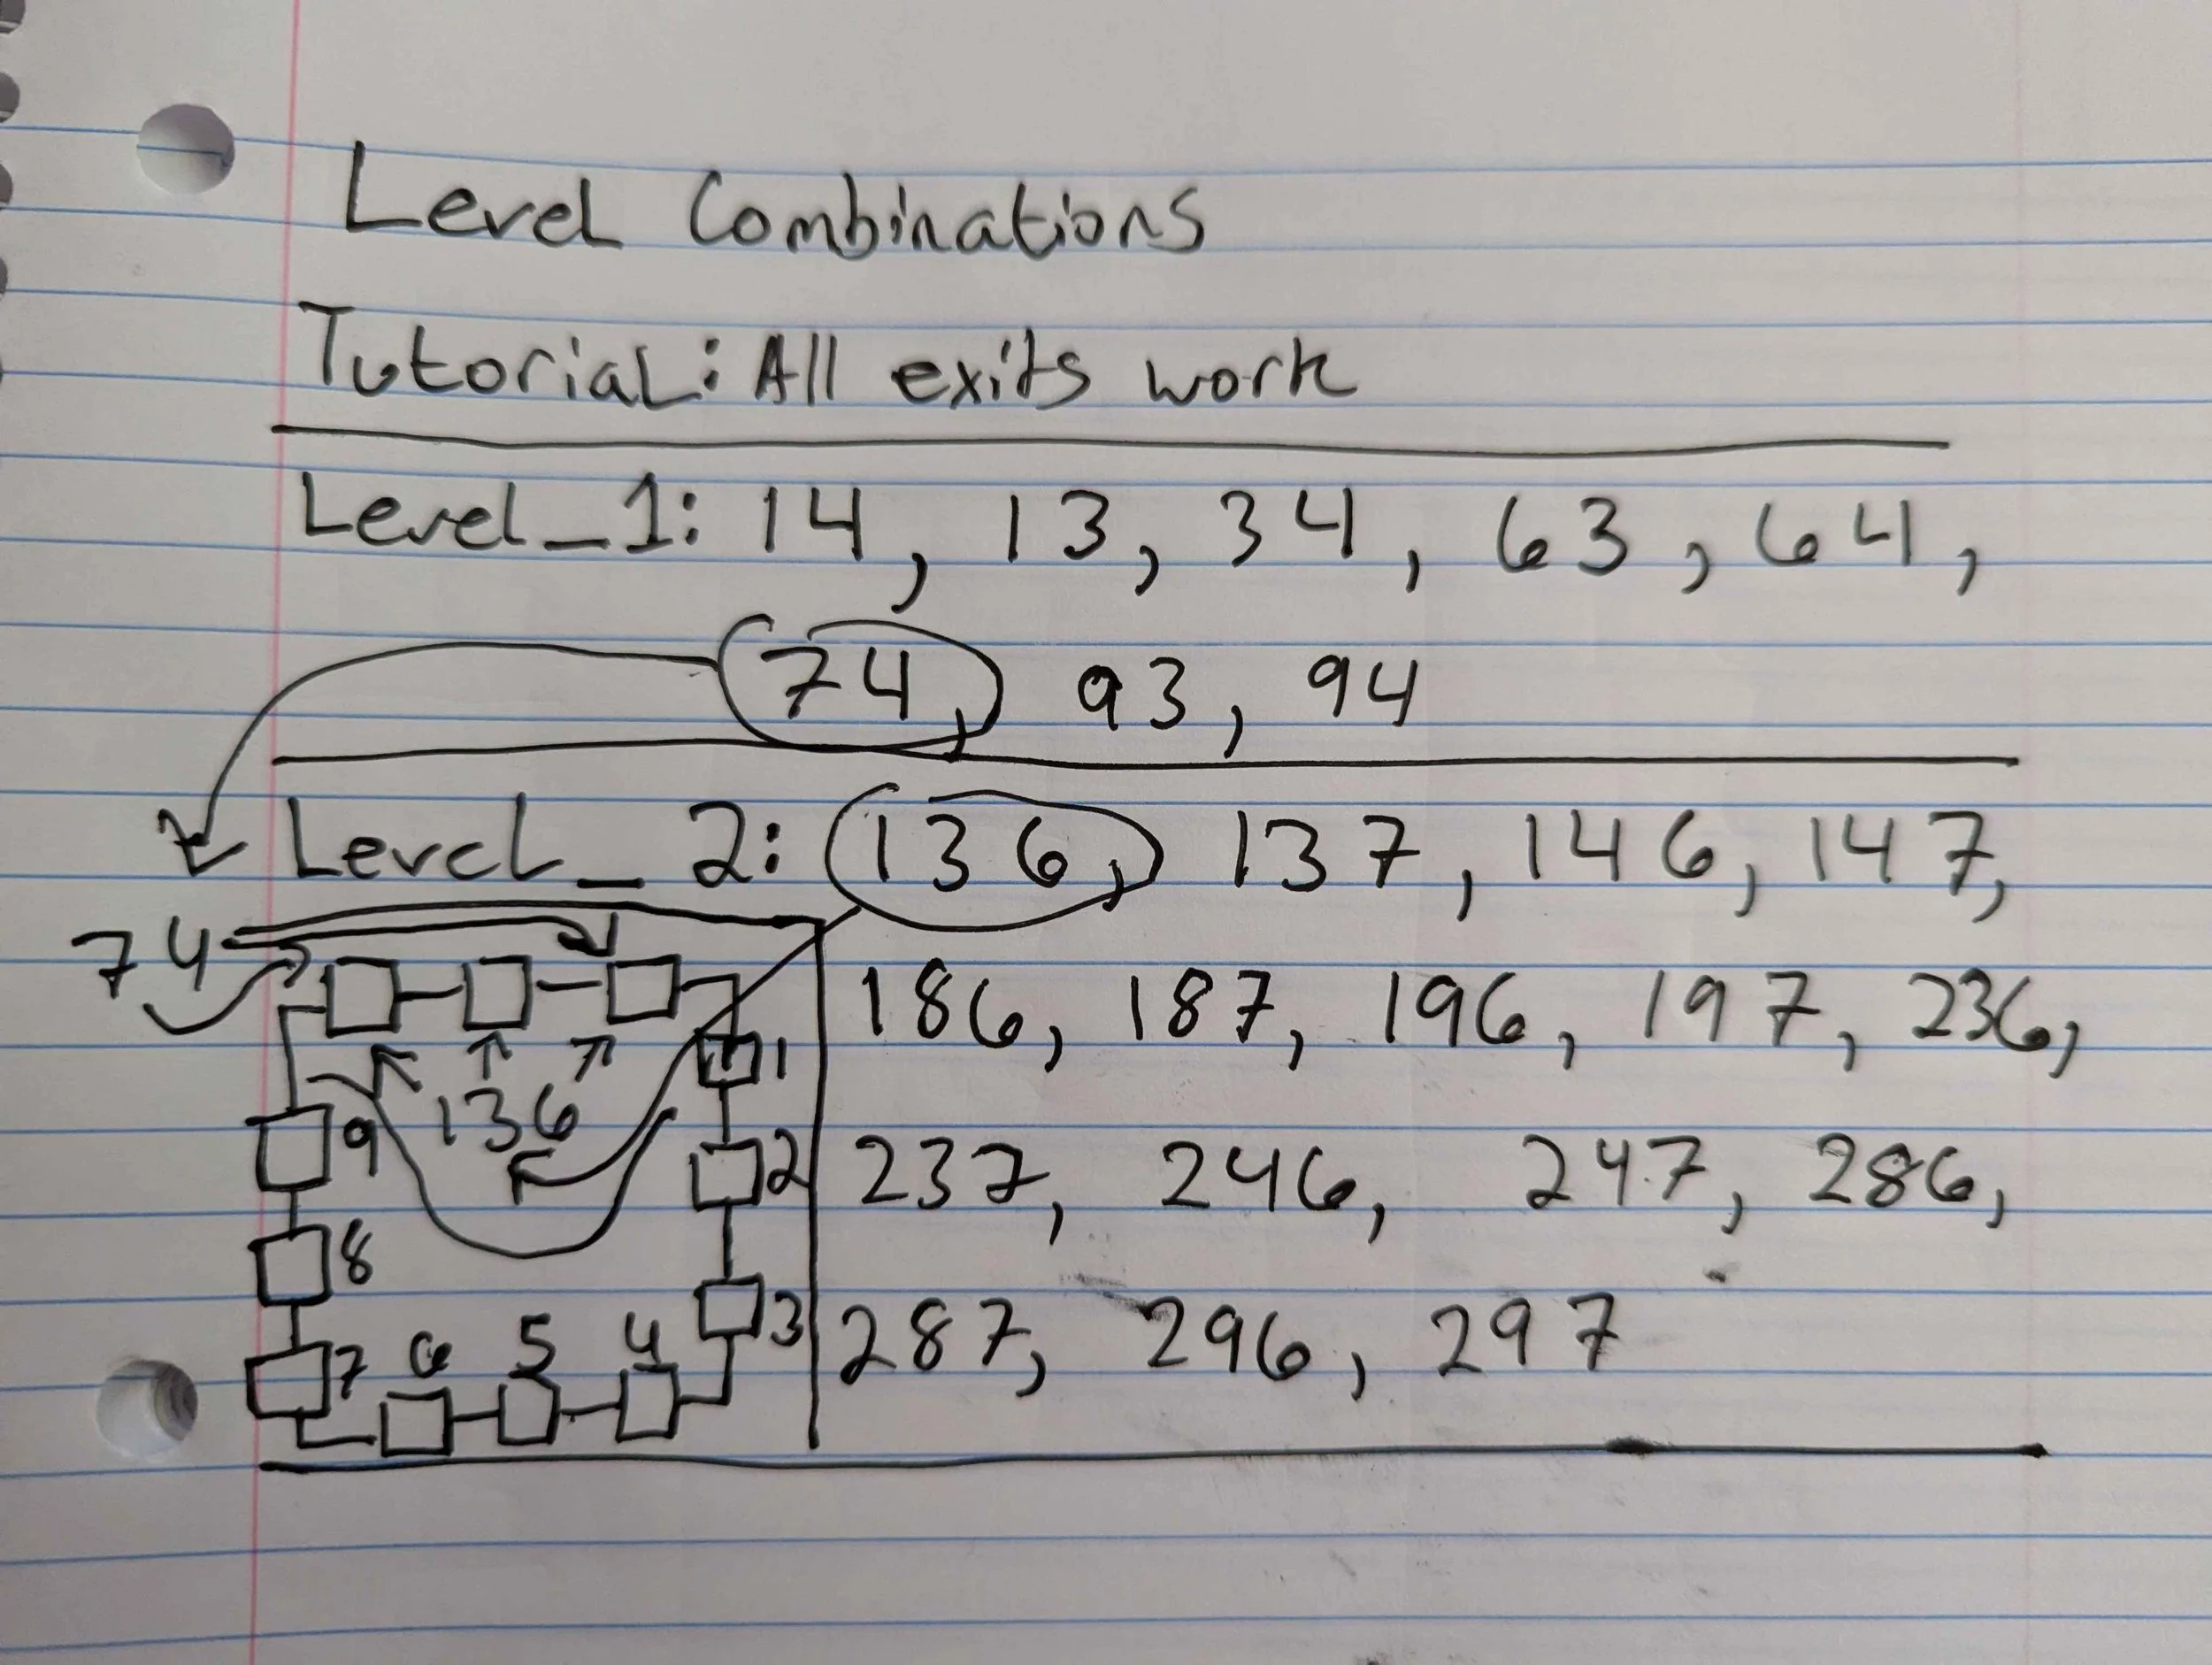 Level Combinations
Tutorial: All exits work
Level_1: 14, 13, 34, 63, 64,
74, 93, 94
Level_2: 136, 137, 146, 147,
74
186, 187, 196, 197, 236,
1
136
9
2
237, 246, 247, 286,
8
3
287, 296, 297
7 6 5 4